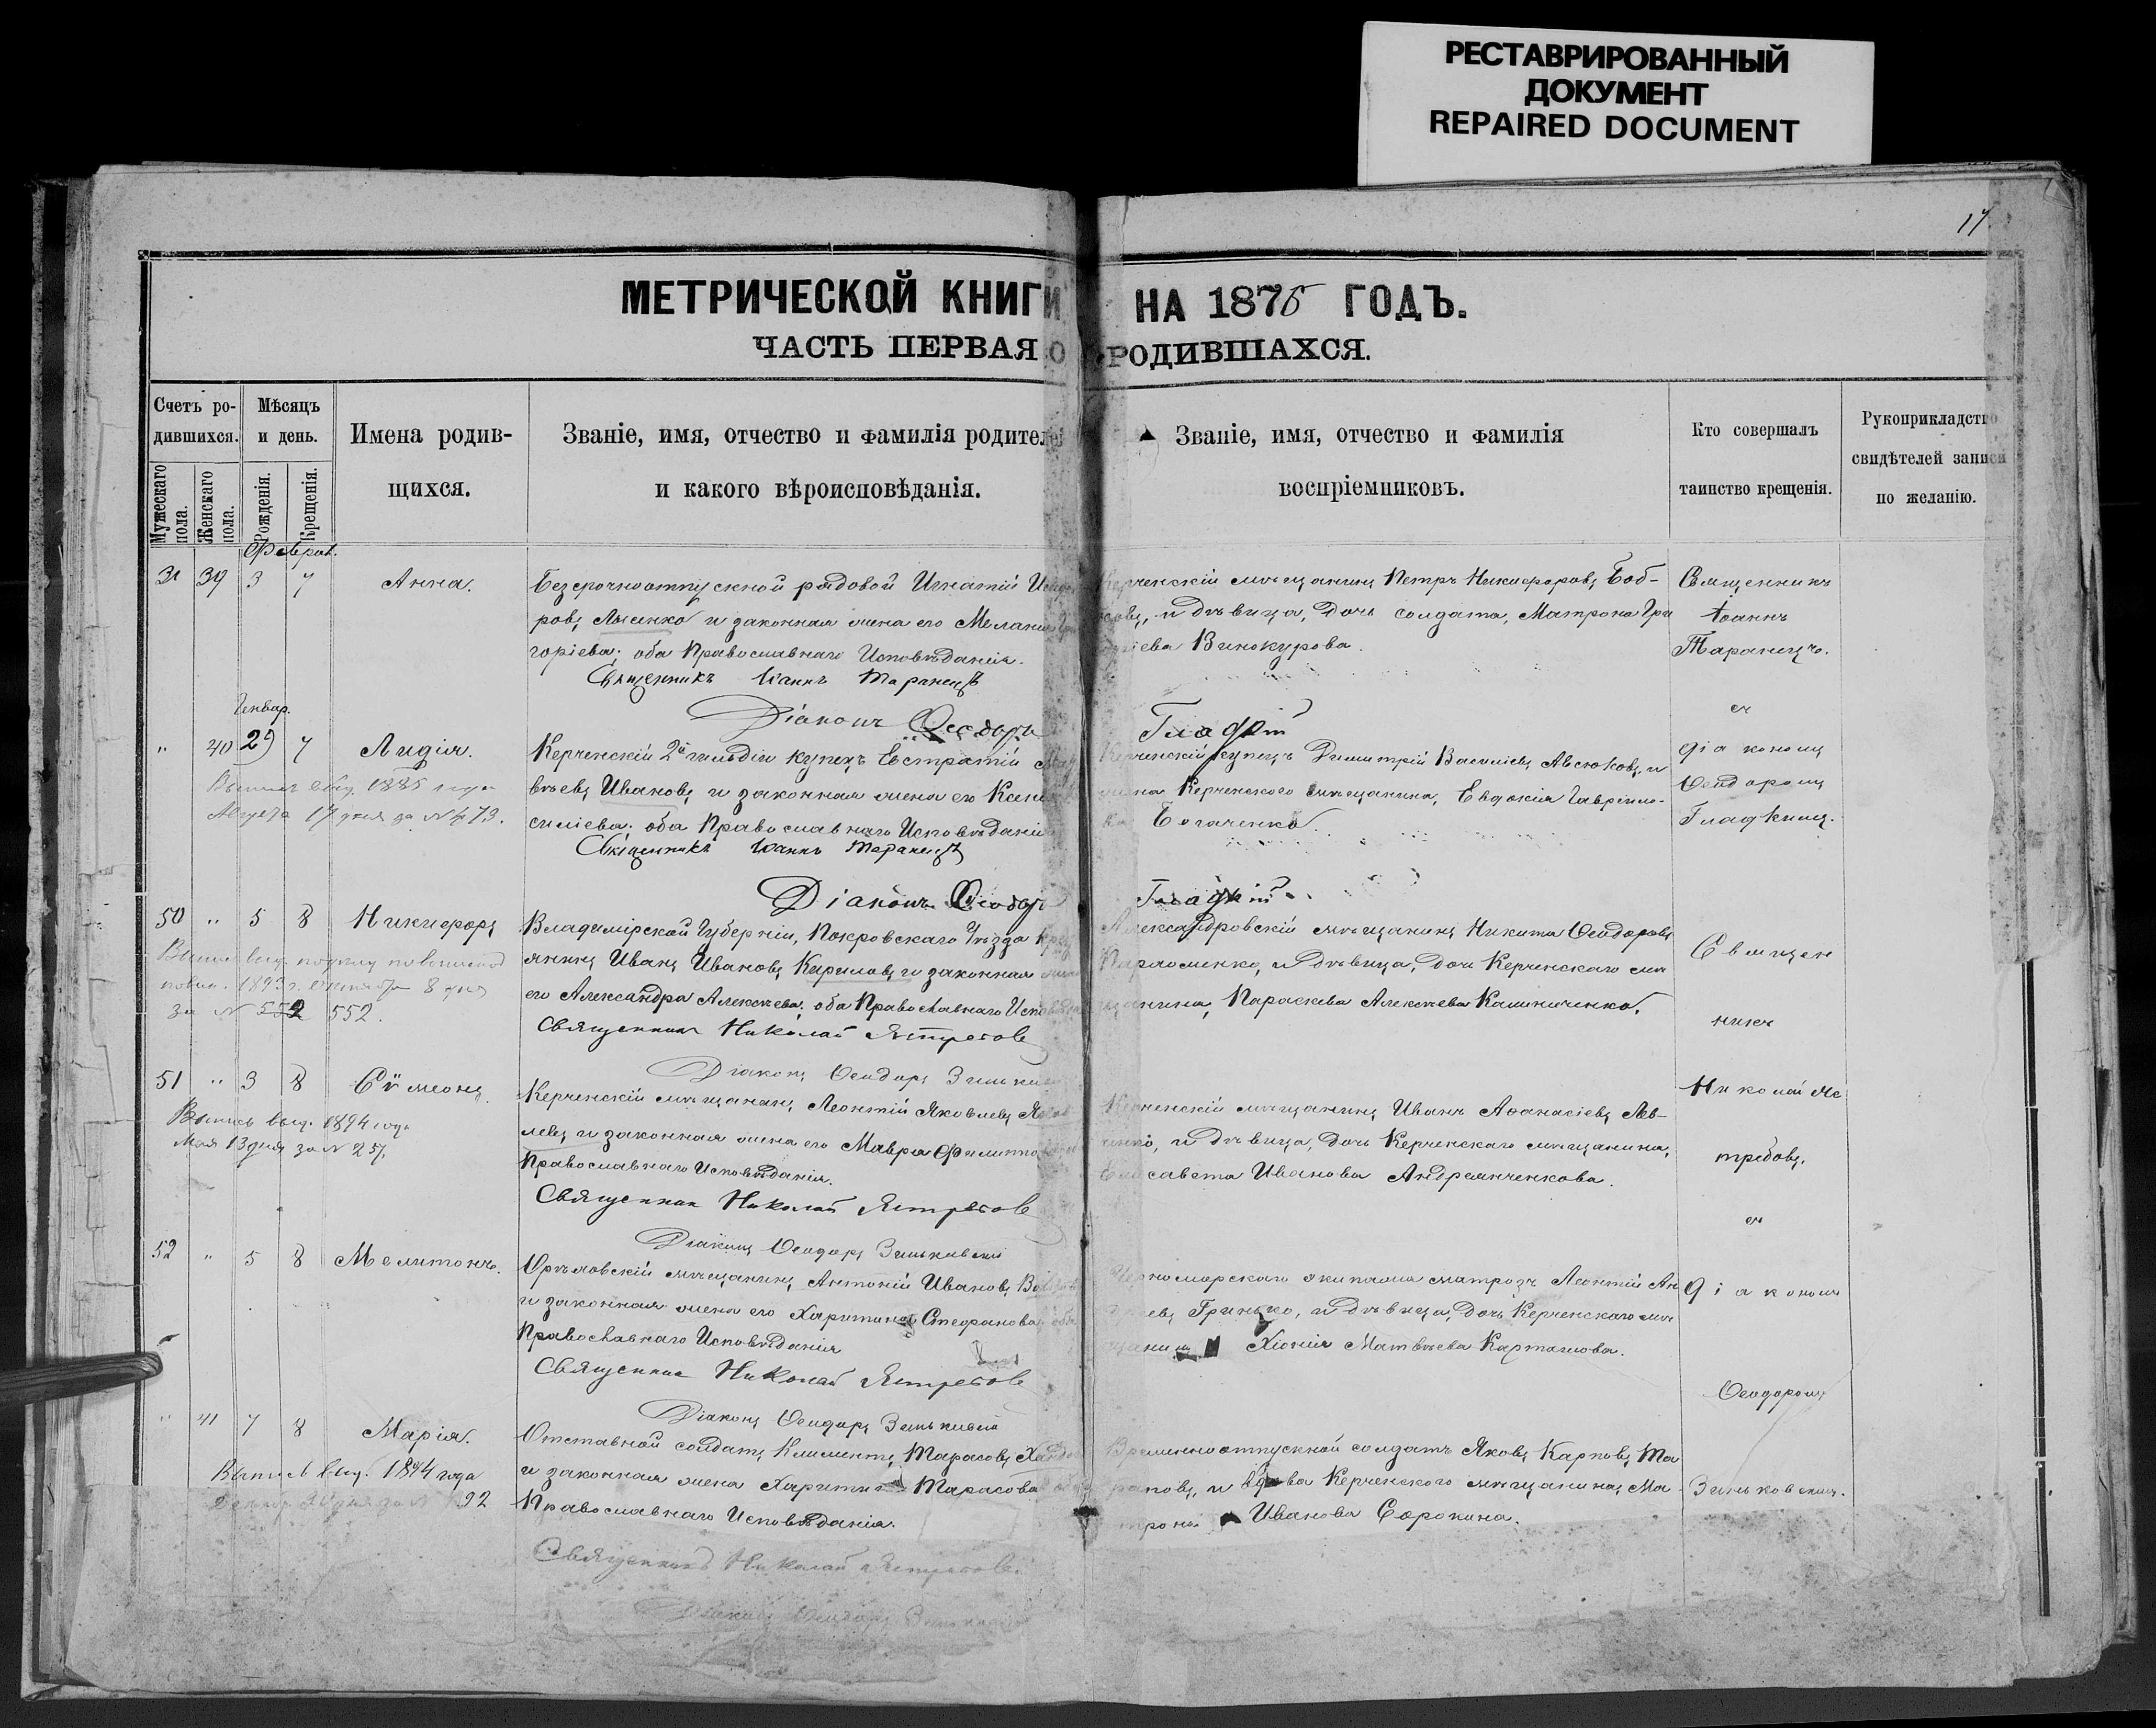 РЕСТАВРИРОВАННЫЙ
ДОКУМЕНТ
REPAIRED DOCUMENT
17
МЕТРИЧЕСКОЙ КНИГИ НА 1875 ГОДЪ.
ЧАСТЬ ПЕРВАЯ О РОДИВШАХСЯ.
Счетъ ро-
дившихся.
Мужескаго пола.
Женскаго пола.
Мѣсяцъ
и день.
Рожденія.
Крещенія.
Имена родив-
щихся.
Званіе, имя, отчество и фамилія родителей
и какого вѣроисповѣданія.
Званіе, имя, отчество и фамилія
воспріемниковъ.
Кто совершалъ
таинство крещенія.
Рукоприкладство
свидѣтелей записи
по желанію.
Феврал.
39 3 7 Анна.
Безсрочноотпускной рядовой Игнатій
ровъ Лысенко и законная жена его Меланія
горіева; оба Православнаго Исповѣданія.
Священникъ Іоаннъ Таранецъ
Діаконъ Ѳеодоръ Гладкій
Керченскій мѣщанинъ Петръ Никифоровъ Боб-
ровъ, и дѣвица, дочь солдата, Матрона Гри
горіева Винокурова.
Священникъ
Іоаннъ
Таранецъ.
съ
діакономъ
Ѳеодоромъ
Гладкимъ.
Январ.
" 40 29 7 Лидія.
Выпись выд. 1885 года
Августа 17 дня за № 473.
Керченскій 2й гильдіи купецъ Евстратій
вѣевъ Ивановъ и законная жена его
силіева; оба Православнаго Исповѣданія
Священникъ Іоаннъ Таранецъ
Діаконъ Ѳеодоръ Гладкій
Керченскій купецъ Димитрій Василіевъ Авсюковъ, и
жена Керченскаго мѣщанина, Евдокія Гаврило-
ва Богаченко.
50 " 5 8 Никифоръ
1893 г. 8 дня
за № 552 552.
Владимірской Губерніи, Покровскаго Уѣзда
янинъ Иванъ Ивановъ Кириловъ и законная жена
его Александра Алексѣева; оба Православнаго
Священникъ Николай Ястребовъ
Діаконъ Ѳеодоръ
Александровскій мѣщанинъ Никита Ѳеодоровъ
Пархоменко, и дѣвица, дочь Керченскаго мѣ
щанина, Параскева Алексѣева Калиниченко.
Священ
никъ
Николай Яс
требовъ,
съ
діакономъ
Ѳеодоромъ
Зиньковскимъ.
51 " 3 8 Сѵмеонъ.
Выпись выд. 1894 года
Мая 13 дня за № 257.
Керченскій мѣщанинъ Леонтій Яковлевъ
левъ и законная жена его Мавра
Православнаго Исповѣданія.
Священникъ Николай Ястребовъ
Діаконъ Ѳеодоръ Зиньковскій
Керченскій мѣщанинъ Иванъ Аѳанасіевъ Лев-
ченко, и дѣвица, дочь Керченскаго мѣщанина,
Елисавета Иванова Андреянченкова.
52 " 5 8 Мелитонъ.
мѣщанинъ Антоній Ивановъ
и законная жена его Харитина Стефанова; оба
Православнаго Исповѣданія
Священникъ Николай Ястребовъ
Діаконъ Ѳеодоръ Зиньковскій
Черноморскаго экипажа матрозъ Леонтій Ан
дреевъ Гринько, и дѣвица, дочь Керченскаго мѣ
щанина Хіонія Матвѣева Карташова.
" 41 7 8 Марія.
Выпись выд. 1894 года
92
Отставной солдатъ Климентъ Тарасовъ
и законная жена Харитина Тарасова
Православнаго Исповѣданія.
Священникъ Николай Ястребовъ.
Діаконъ Ѳеодоръ Зиньковскій
Временноотпускной солдатъ Яковъ Карповъ Та
рановъ, и вдова Керченскаго мѣщанина, Ма-
трона Иванова Сорокина.